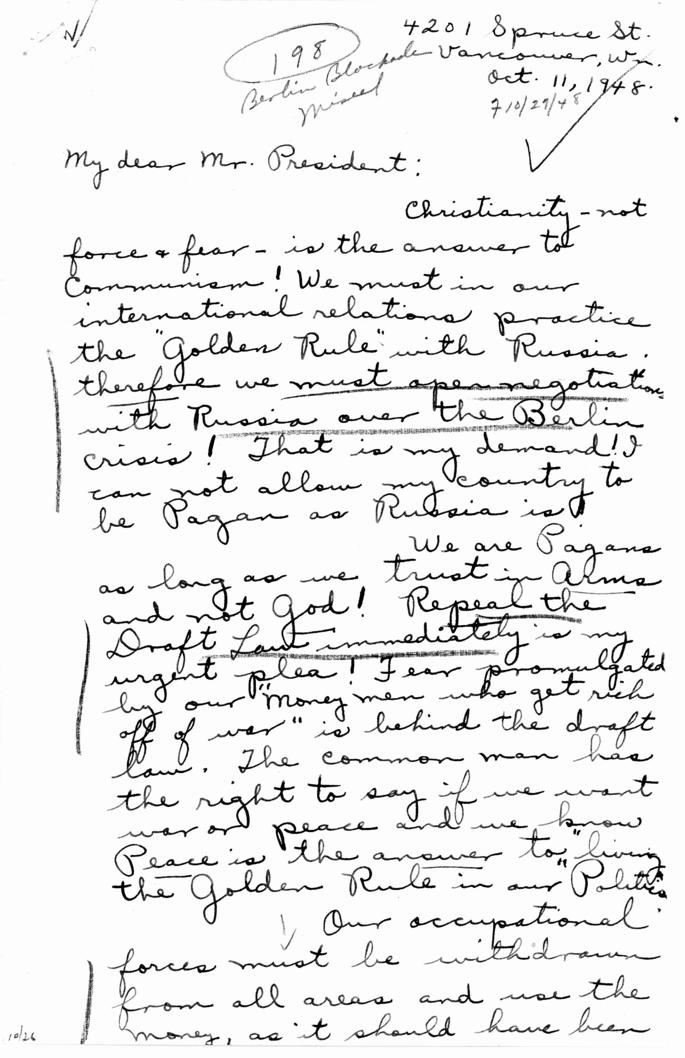 4201 Spruce St.
Vancouver, Wn.
Oct. 11, 1948.
198
Berlin Blockade
Misced
F 10/29/48
My dear Mr. President:
Christianity - not
force & fear - is the answer to
Communism! We must in our
international relations practice
the "Golden Rule" with Russia.
therefore we must open negotiations
with Russia over the Berlin
crisis! That is my demand! I
can not allow my country to
be Pagan as Russia is!
We are Pagans
as long as we trust in Arms
and not God! Repeal the
Draft Law immediately is my
urgent plea! Fear promulgated
by our "Money men who get rich
off of war" is behind the draft
law. The common man has
the right to say if we want
war or peace and we know
Peace is the answer to "living
the Golden Rule in our "Politics".
Our occupational
forces must be withdrawn
from all areas and use the
money, as it should have been
10/26